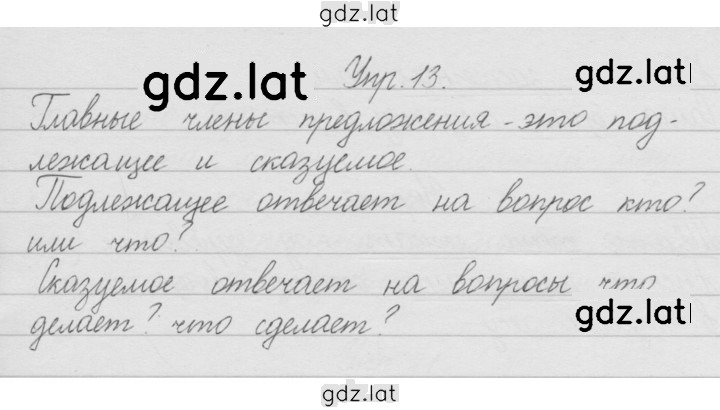 gdz.lat
gdz.lat Упр. 13. gdz.lat
Главные члены предложения - это под-
лежащее и сказуемое.
Подлежащее отвечает на вопрос кто?
или что?
Сказуемое отвечает на вопросы что
делает? что сделает? gdz.lat
gdz.lat